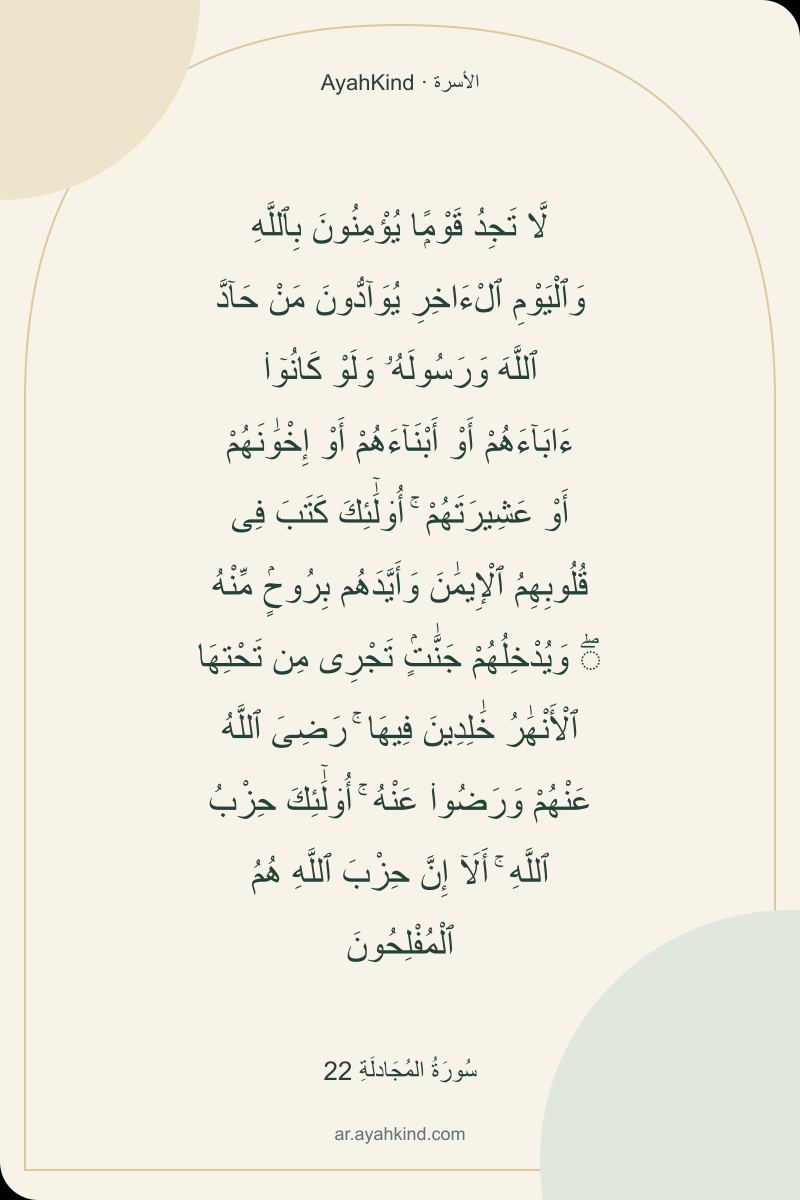 AyahKind · الأسرة
لَّا تَجِدُ قَوْمًۭا يُؤْمِنُونَ بِٱللَّهِ
وَٱلْيَوْمِ ٱلْـَٔاخِرِ يُوَآدُّونَ مَنْ حَآدَّ
ٱللَّهَ وَرَسُولَهُۥ وَلَوْ كَانُوٓا۟
ءَابَآءَهُمْ أَوْ أَبْنَآءَهُمْ أَوْ إِخْوَٰنَهُمْ
أَوْ عَشِيرَتَهُمْ ۚ أُو۟لَٰٓئِكَ كَتَبَ فِى
قُلُوبِهِمُ ٱلْإِيمَٰنَ وَأَيَّدَهُم بِرُوحٍۢ مِّنْهُ
ۖ وَيُدْخِلُهُمْ جَنَّٰتٍۢ تَجْرِى مِن تَحْتِهَا
ٱلْأَنْهَٰرُ خَٰلِدِينَ فِيهَا ۚ رَضِىَ ٱللَّهُ
عَنْهُمْ وَرَضُوا۟ عَنْهُ ۚ أُو۟لَٰٓئِكَ حِزْبُ
ٱللَّهِ ۚ أَلَآ إِنَّ حِزْبَ ٱللَّهِ هُمُ
ٱلْمُفْلِحُونَ
سُورَةُ المُجَادلَةِ 22
ar.ayahkind.com